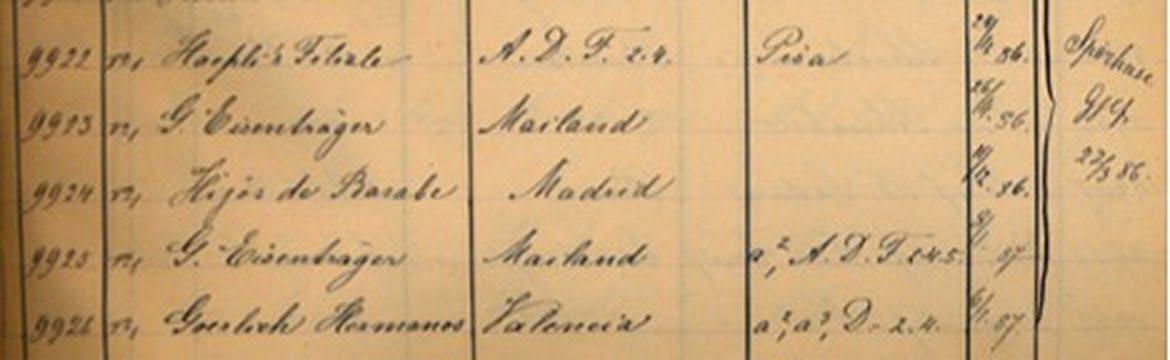 9922 n, Hoepli's Filiale A. D. F. 2.4. Pisa 86. Spörhase
9923 n, G. Eisenträger Mailand 86.
9924 n, Hijos de Barabe Madrid 86. 22/3 86.
9925 n, G. Eisenträger Mailand a², A. D. F. 2.4.5. 87
9926 n, Goerlich Hermanos Valencia a², a³, D. 2.4. 87.